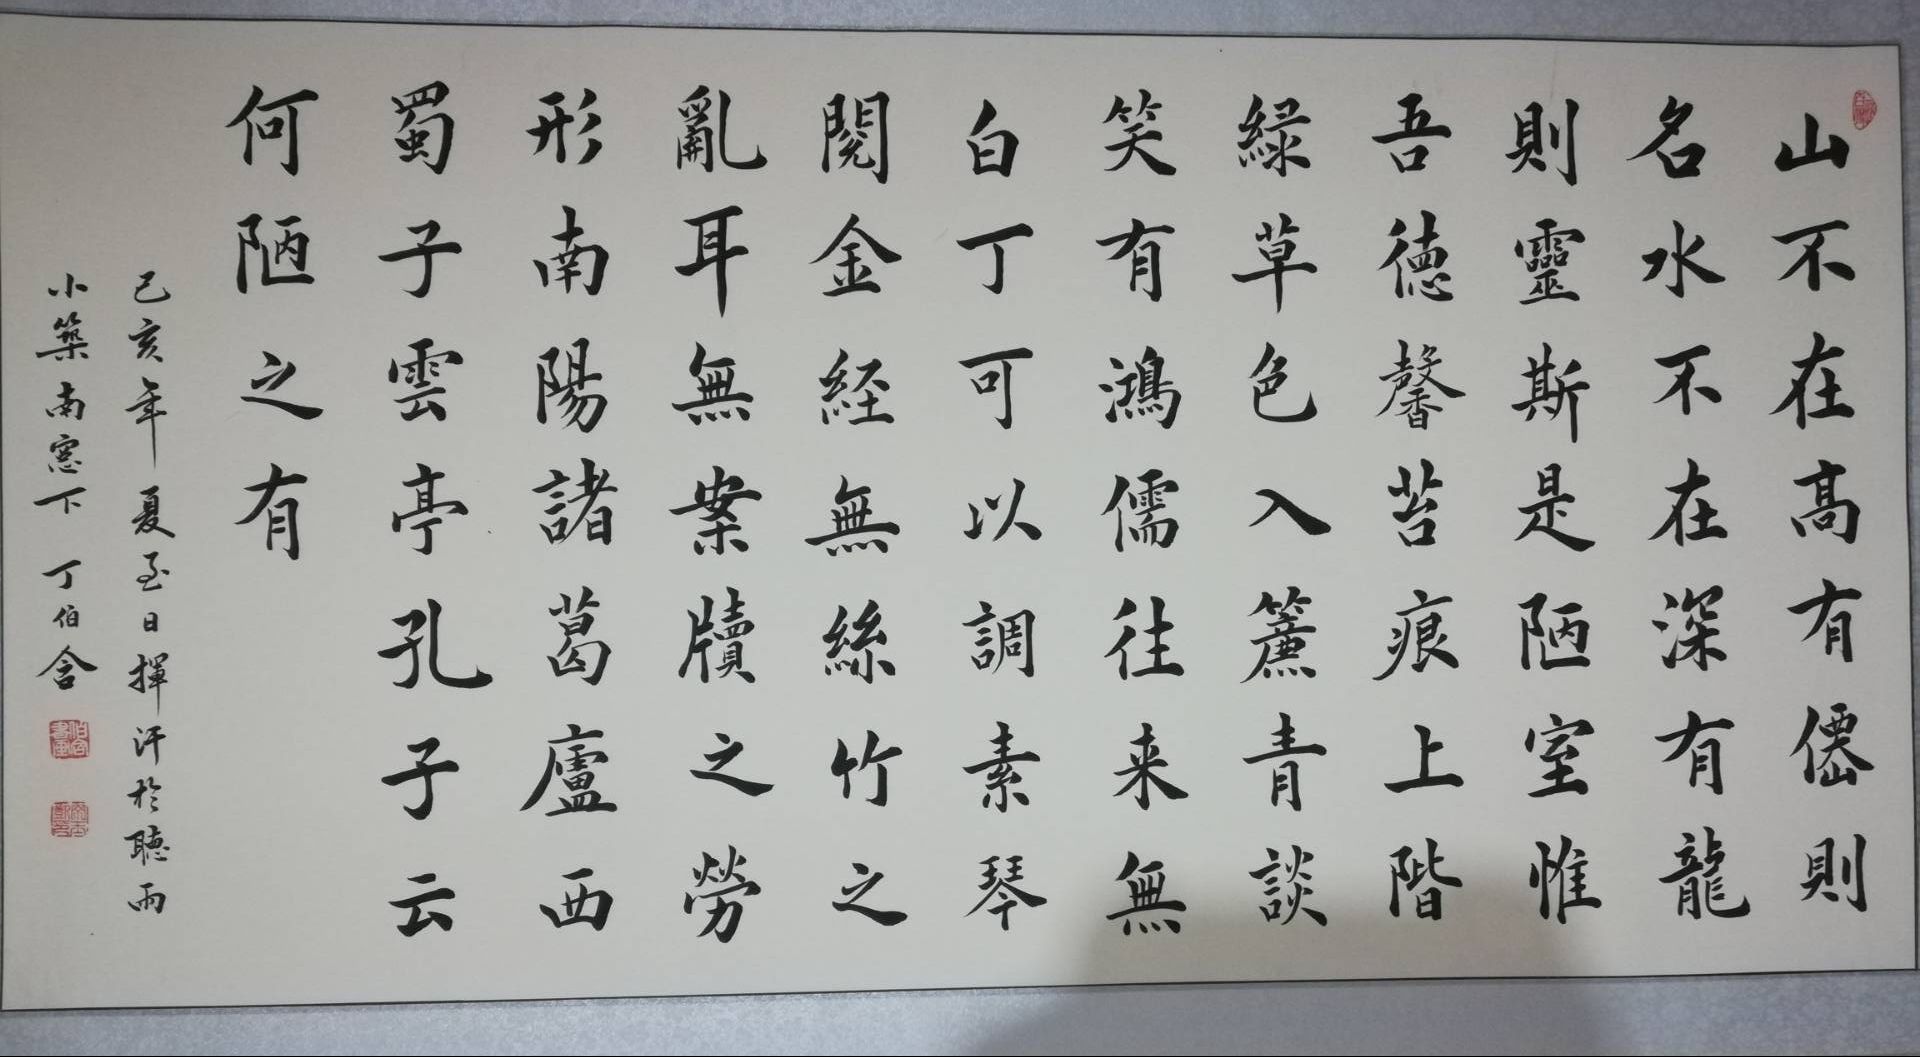 山不在高有僊則
名水不在深有龍
則靈斯是陋室惟
吾德馨苔痕上階
緑草色入簾青談
笑有鴻儒往来無
白丁可以調素琴
閱金経無絲竹之
亂耳無案牘之勞
形南陽諸葛廬西
蜀子雲亭孔子云
何陋之有
己亥年夏至日揮汗於聽雨
小築南窓下 丁伯含